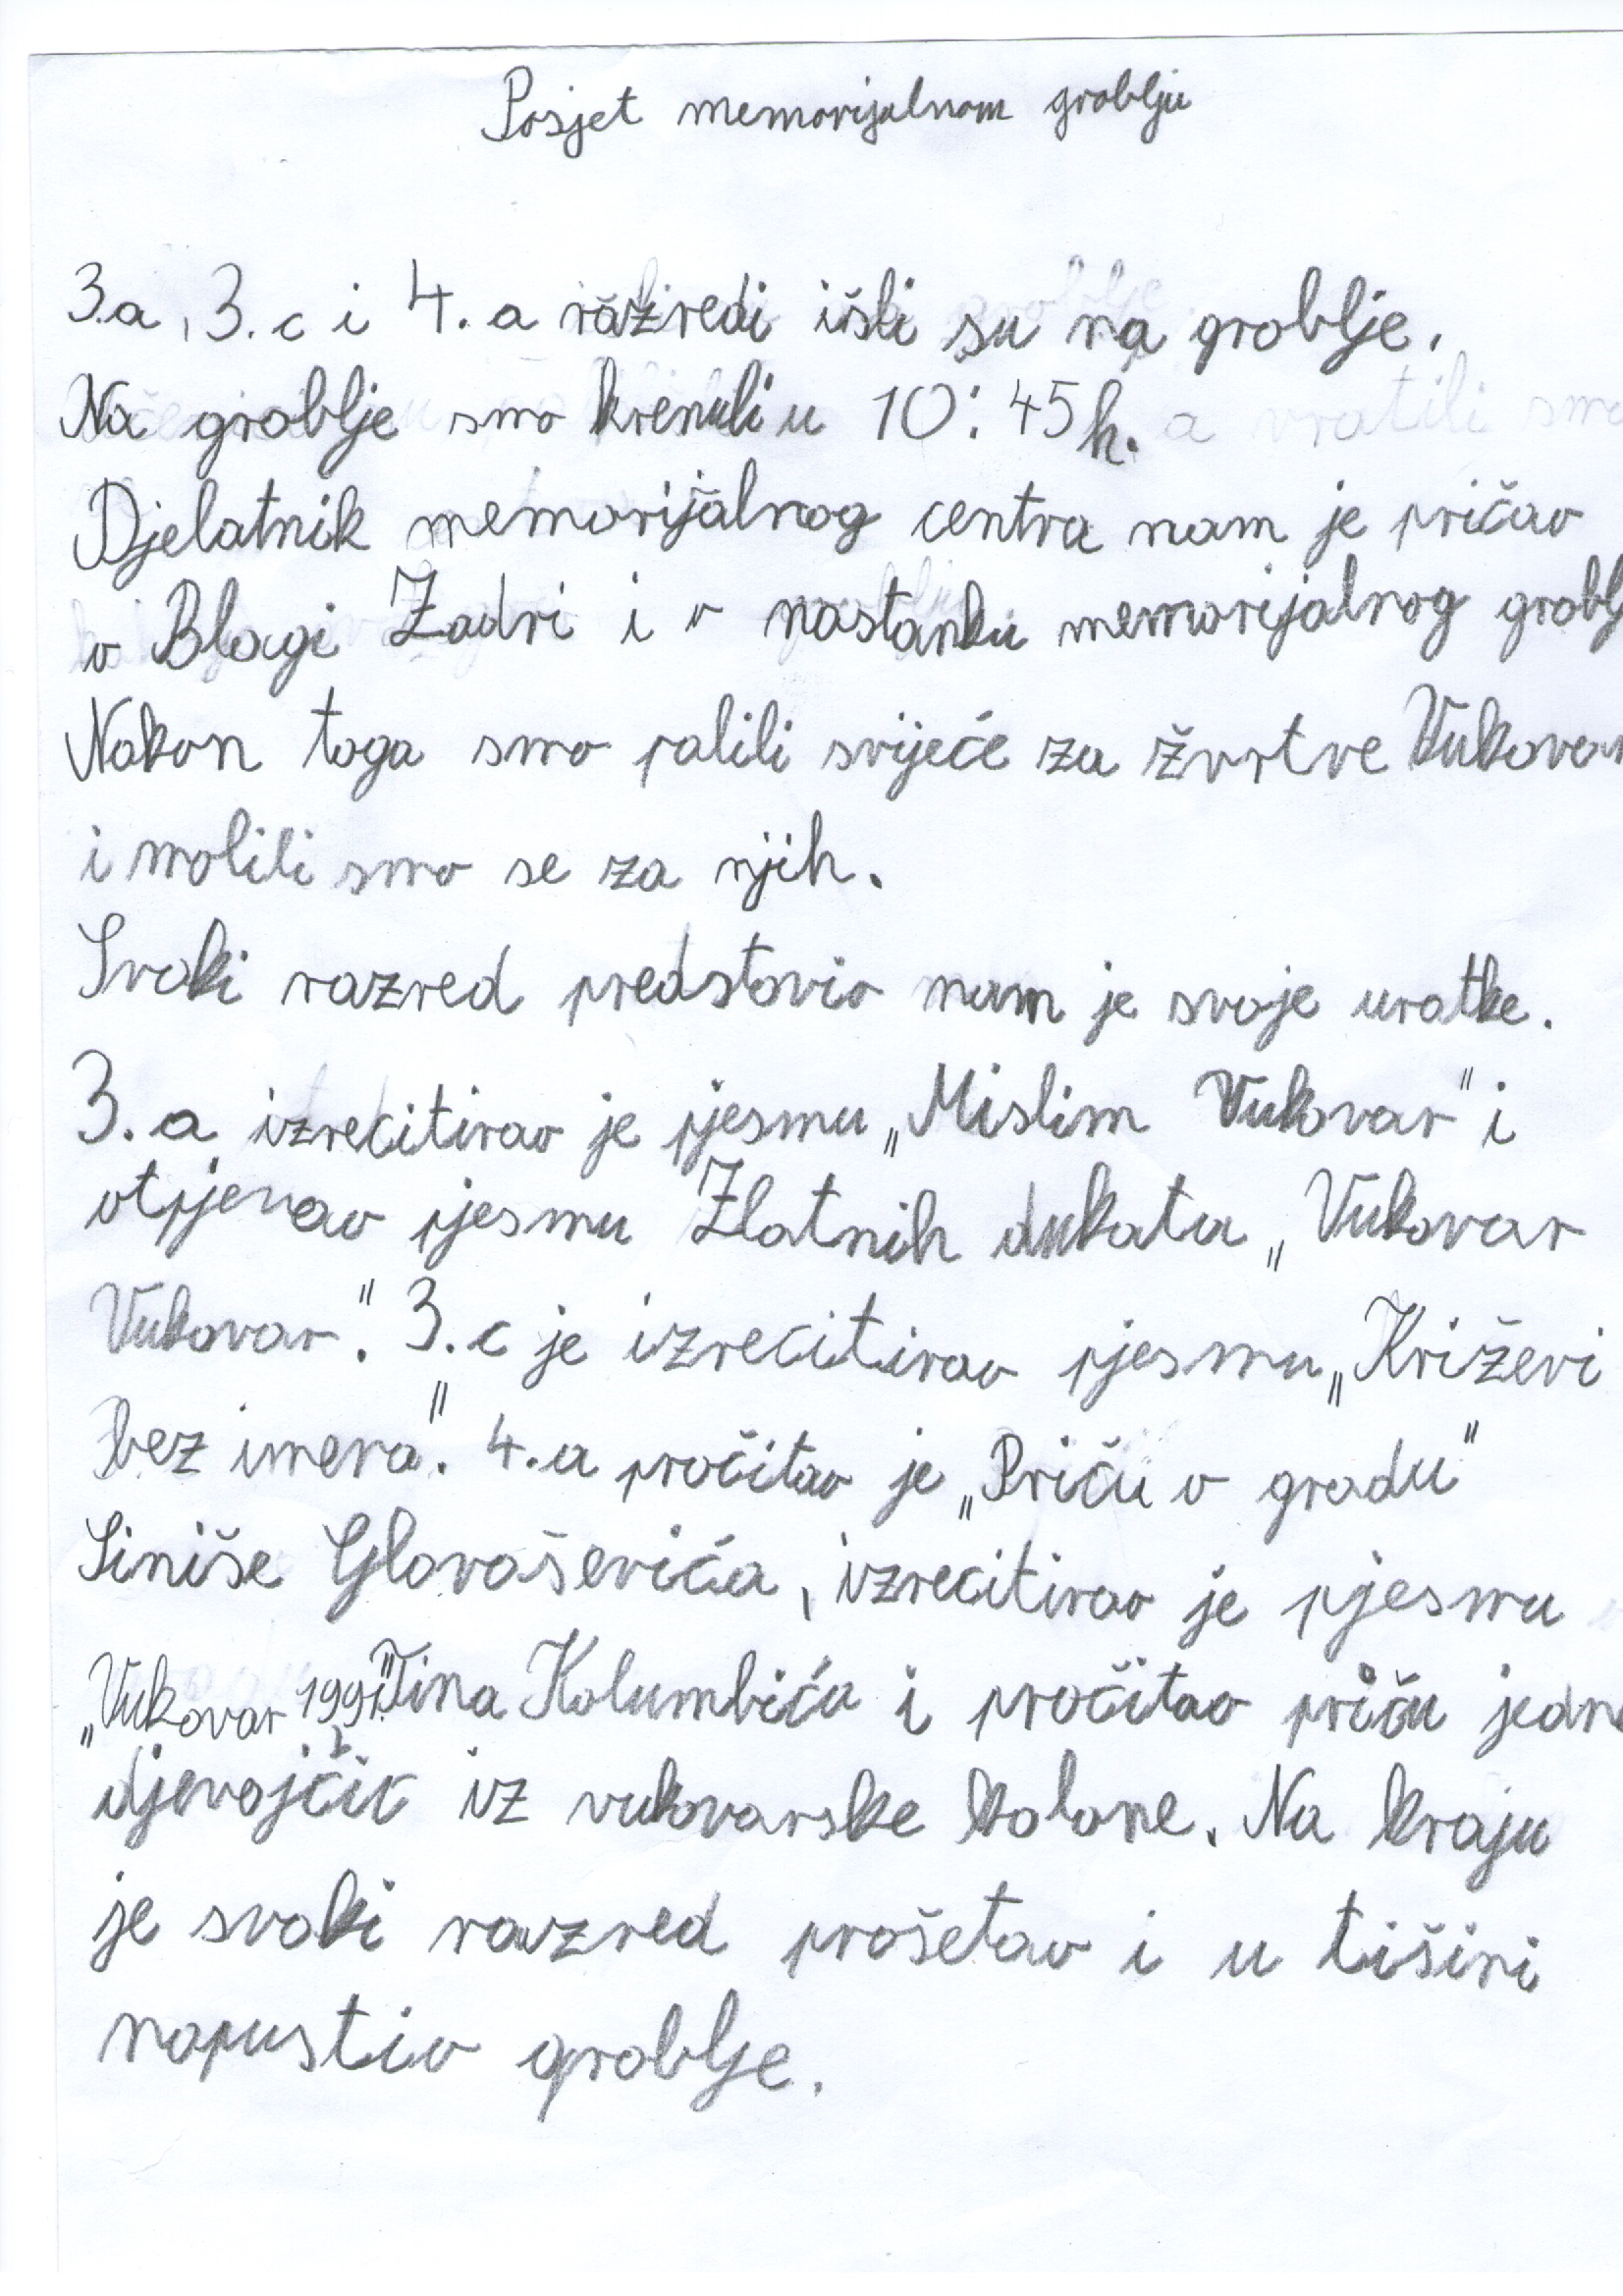 Posjet memorijalnom groblju
3.a, 3.c i 4.a razredi išli su na groblje.
Na groblje smo krenuli u 10:45h. a vratili smo
Djelatnik memorijalnog centra nam je pričao
o Blagi Zadri i o nastanku memorijalnog grobl
Nakon toga smo palili svijeće za žrtve Vukovar
i molili smo se za njih.
Svaki razred predstavio nam je svoje uratke.
3.a izrecitirao je pjesmu „Mislim Vukovar" i
otpjevao pjesmu Zlatnih dukata „Vukovar
Vukovar". 3.c je izrecitirao pjesmu „Križevi
bez imena". 4.a pročitao je „Priču o gradu"
Siniše Glavaševića, izrecitirao je pjesmu
„Vukovar 1991." Tina Kolumbića i pročitao priču jedne
iz vukovarske kolone. Na kraju
je svaki razred prošetao i u tišini
napustio groblje.